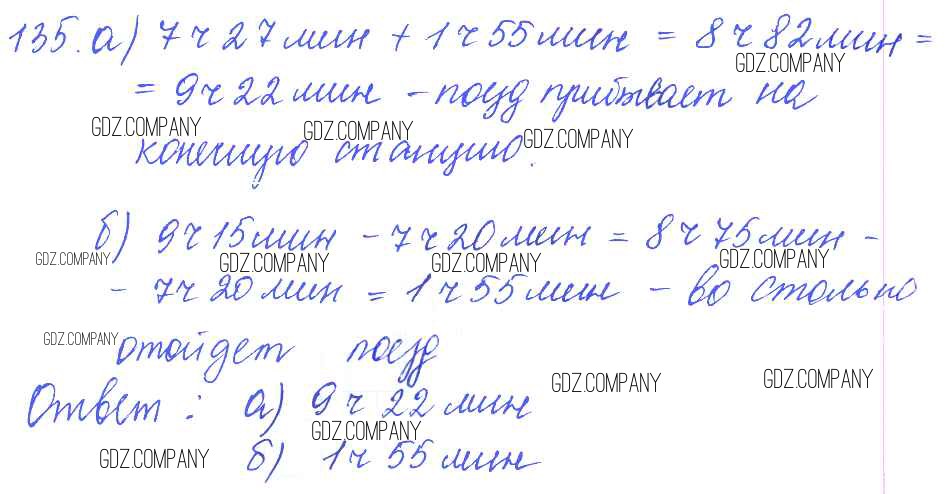 135. а) 7 ч 27 мин + 1 ч 55 мин = 8 ч 82 мин =
GDZ.COMPANY
= 9 ч 22 мин - поезд прибывает на
GDZ.COMPANY GDZ.COMPANY GDZ.COMPANY
конечную станцию.
б) 9 ч 15 мин - 7 ч 20 мин = 8 ч 75 мин -
GDZ.COMPANY GDZ.COMPANY GDZ.COMPANY GDZ.COMPANY
- 7 ч 20 мин = 1 ч 55 мин - во столько
GDZ.COMPANY
отойдет поезд
GDZ.COMPANY GDZ.COMPANY
Ответ: а) 9 ч 22 мин
GDZ.COMPANY
GDZ.COMPANY б) 1 ч 55 мин